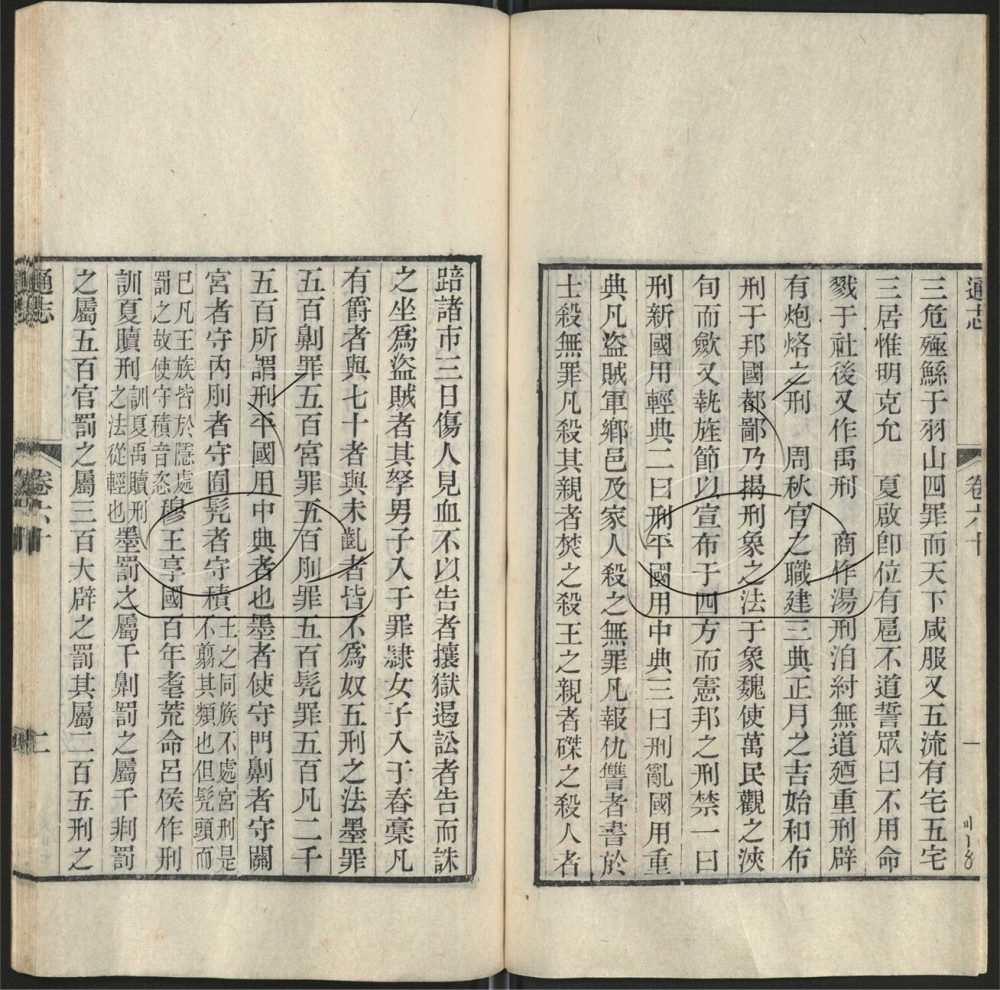 通志
卷六十
一
三危殛鯀于羽山四罪而天下咸服又五流有宅五宅
三居惟明克允　夏啟卽位有扈不道誓眾曰不用命
戮于社後又作禹刑　商作湯刑洎紂無道廼重刑辟
有炮烙之刑　周秋官之職建三典正月之吉始和布
刑于邦國都鄙乃揭刑象之法于象魏使萬民觀之浹
旬而斂又執旌節以宣布于四方而憲邦之刑禁一曰
刑新國用輕典二曰刑平國用中典三曰刑亂國用重
典凡盜賊軍鄉邑及家人殺之無罪凡報仇讐者書於
士殺無罪凡殺其親者焚之殺王之親者磔之殺人者
踣諸市三日傷人見血不以告者攘獄遏訟者告而誅
之坐爲盜賊者其孥男子入于罪隸女子入于舂槀凡
有爵者與七十者與未齔者皆不爲奴五刑之法墨罪
五百劓罪五百宮罪五百刖罪五百髡罪五百凡二千
五百所謂刑平國用中典者也墨者使守門劓者守關
宮者守內刖者守囿髡者守積王之同族不處宮刑是不翦其類也但髡頭而
已凡王族皆於隱處罰之故使守積音恣穆王享國百年耄荒命呂侯作刑
訓夏贖刑訓夏禹贖刑之法從輕也墨罰之屬千劓罰之屬千剕罰
之屬五百官罰之屬三百大辟之罰其屬二百五刑之
通志
卷六十
二